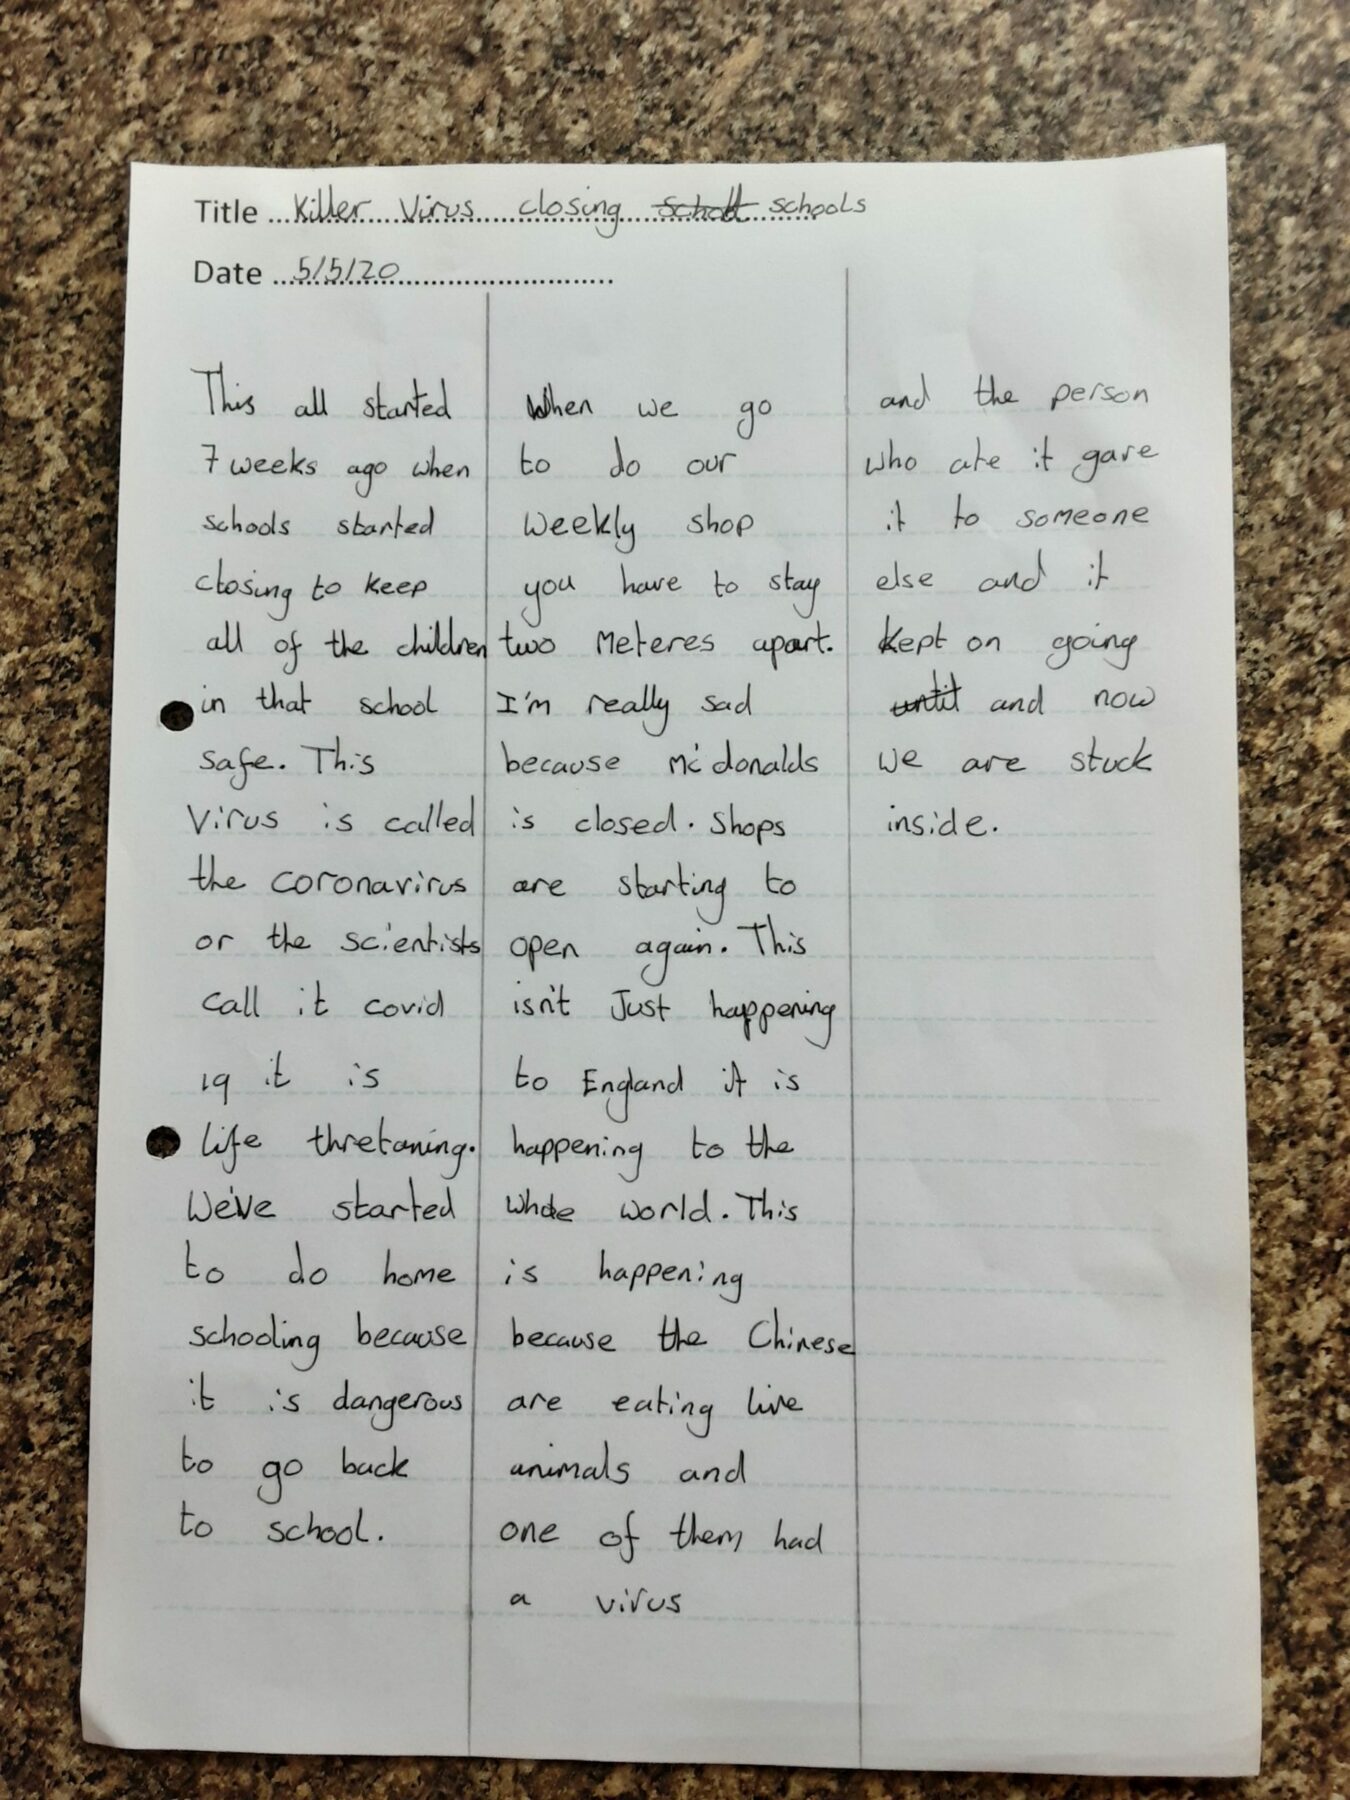 Title ... Killer Virus closing schools
Date ... 5/5/20
This all started
7 weeks ago when
schools started
closing to keep
all of the children
in that school
safe. This
Virus is called
the coronavirus
or the scientists
call it covid
19 it is
life thretaning.
We've started
to do home
schooling because
it is dangerous
to go back
to school.
When we go
to do our
weekly shop
you have to stay
two Meteres apart.
I'm really sad
because mc'donalds
is closed. Shops
are starting to
open again. This
isn't Just happening
to England it is
happening to the
whole world. This
is happening
because the Chinese
are eating live
animals and
one of them had
a virus
and the person
who ate it gave
it to someone
else and it
kept on going
until and now
we are stuck
inside.